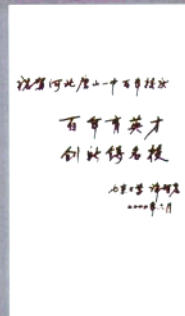 祝贺河北唐山一中百年校庆
百年育英才
创新铸名校
北京大学
二〇〇〇年六月